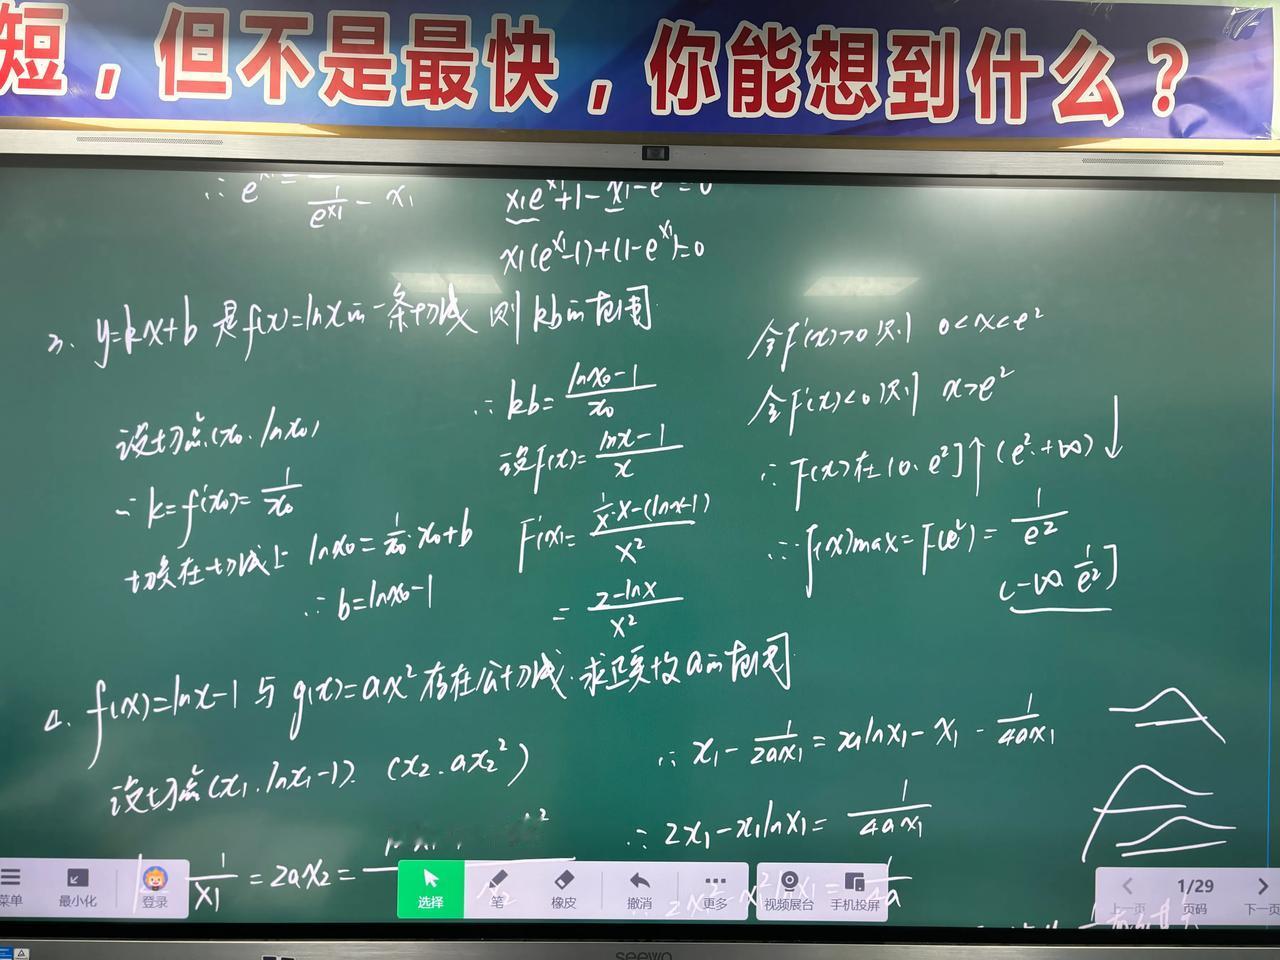 短，但不是最快，你能想到什么？
x₁e^x₁+1-x₁-e =0
∴ e^x₁= 1/e^x₁ - x₁
x₁(e^x₁-1)+(1-e^x₁)=0
3. y=kx+b 是f(x)=lnx的一条切线 则kb的范围
设切点(x₀, lnx₀)
∴ k=f'(x₀)=1/x₀
切点在切线上 lnx₀=1/x₀·x₀+b
∴ b=lnx₀-1
∴ kb=(lnx₀-1)/x₀
设F(x)=(lnx-1)/x
F'(x)=(1/x·x-(lnx-1))/x²
=(2-lnx)/x²
令F'(x)>0 则 0<x<e²
令F'(x)<0 则 x>e²
∴ F(x)在(0,e²]↑(e²,+∞)↓
∴ F(x)max=F(e²)=1/e²
(-∞,1/e²]
4. f(x)=lnx-1 与 g(x)=ax²存在公切线.求正实数a的范围
设切点(x₁,lnx₁-1), (x₂,ax₂²)
1/x₁=2ax₂=
∴ x₁-1/2ax₁=x₁lnx₁-x₁-1/4ax₁
∴ 2x₁-x₁lnx₁=1/4ax₁
菜单
最小化
登录
选择
笔
橡皮
撤消
更多
视频展台
手机投屏
上一页
1/29
页码
下一页
seewo